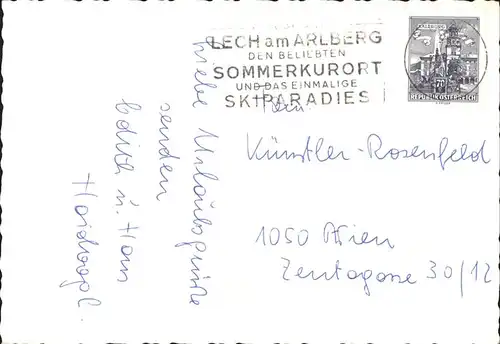 LECH am ARLBERG
DEN BELIEBTEN
SOMMERKURORT
UND DAS EINMALIGE
SKIPARADIES
REPUBLIK ÖSTERREICH
Fam.
Künstler-Rosenfeld
1050 Wien
Zentagasse 30/12
Liebe Urlaubsgrüße
senden
Edith u. Hans